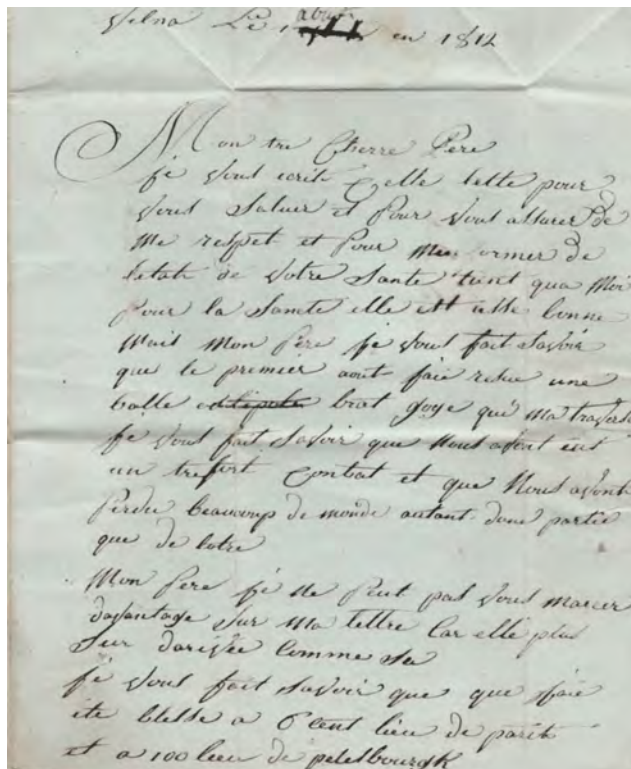 Velna Le 1 aout en 1812
Mon tre Cherre Pere
je vous ecrit Cette lette pour
vous Saluer et pour vous assurer de
Me respet et pour de
letat de votre Sante tient qua Moi
pour la Samte elle est asse bonne
Mais Mon Pere je vous fait Savoir
que le premier aout jaie resue une
balle brat goye qui ma traverse
je vous fait Savoir que Nous avont eut
un trefort Combat et que Nous avont
perdu beaucoup de monde autant dune partie
que de lotre
Mon Pere je ne peut pas vous marcer
davantage Sur Ma lettre Car elle plus
Sur darivee Comme Sa
je vous fait Savoir que que jaie
ete blesse a 6 Cent lieu de parit
et a 100 lieu de petelsbourgk